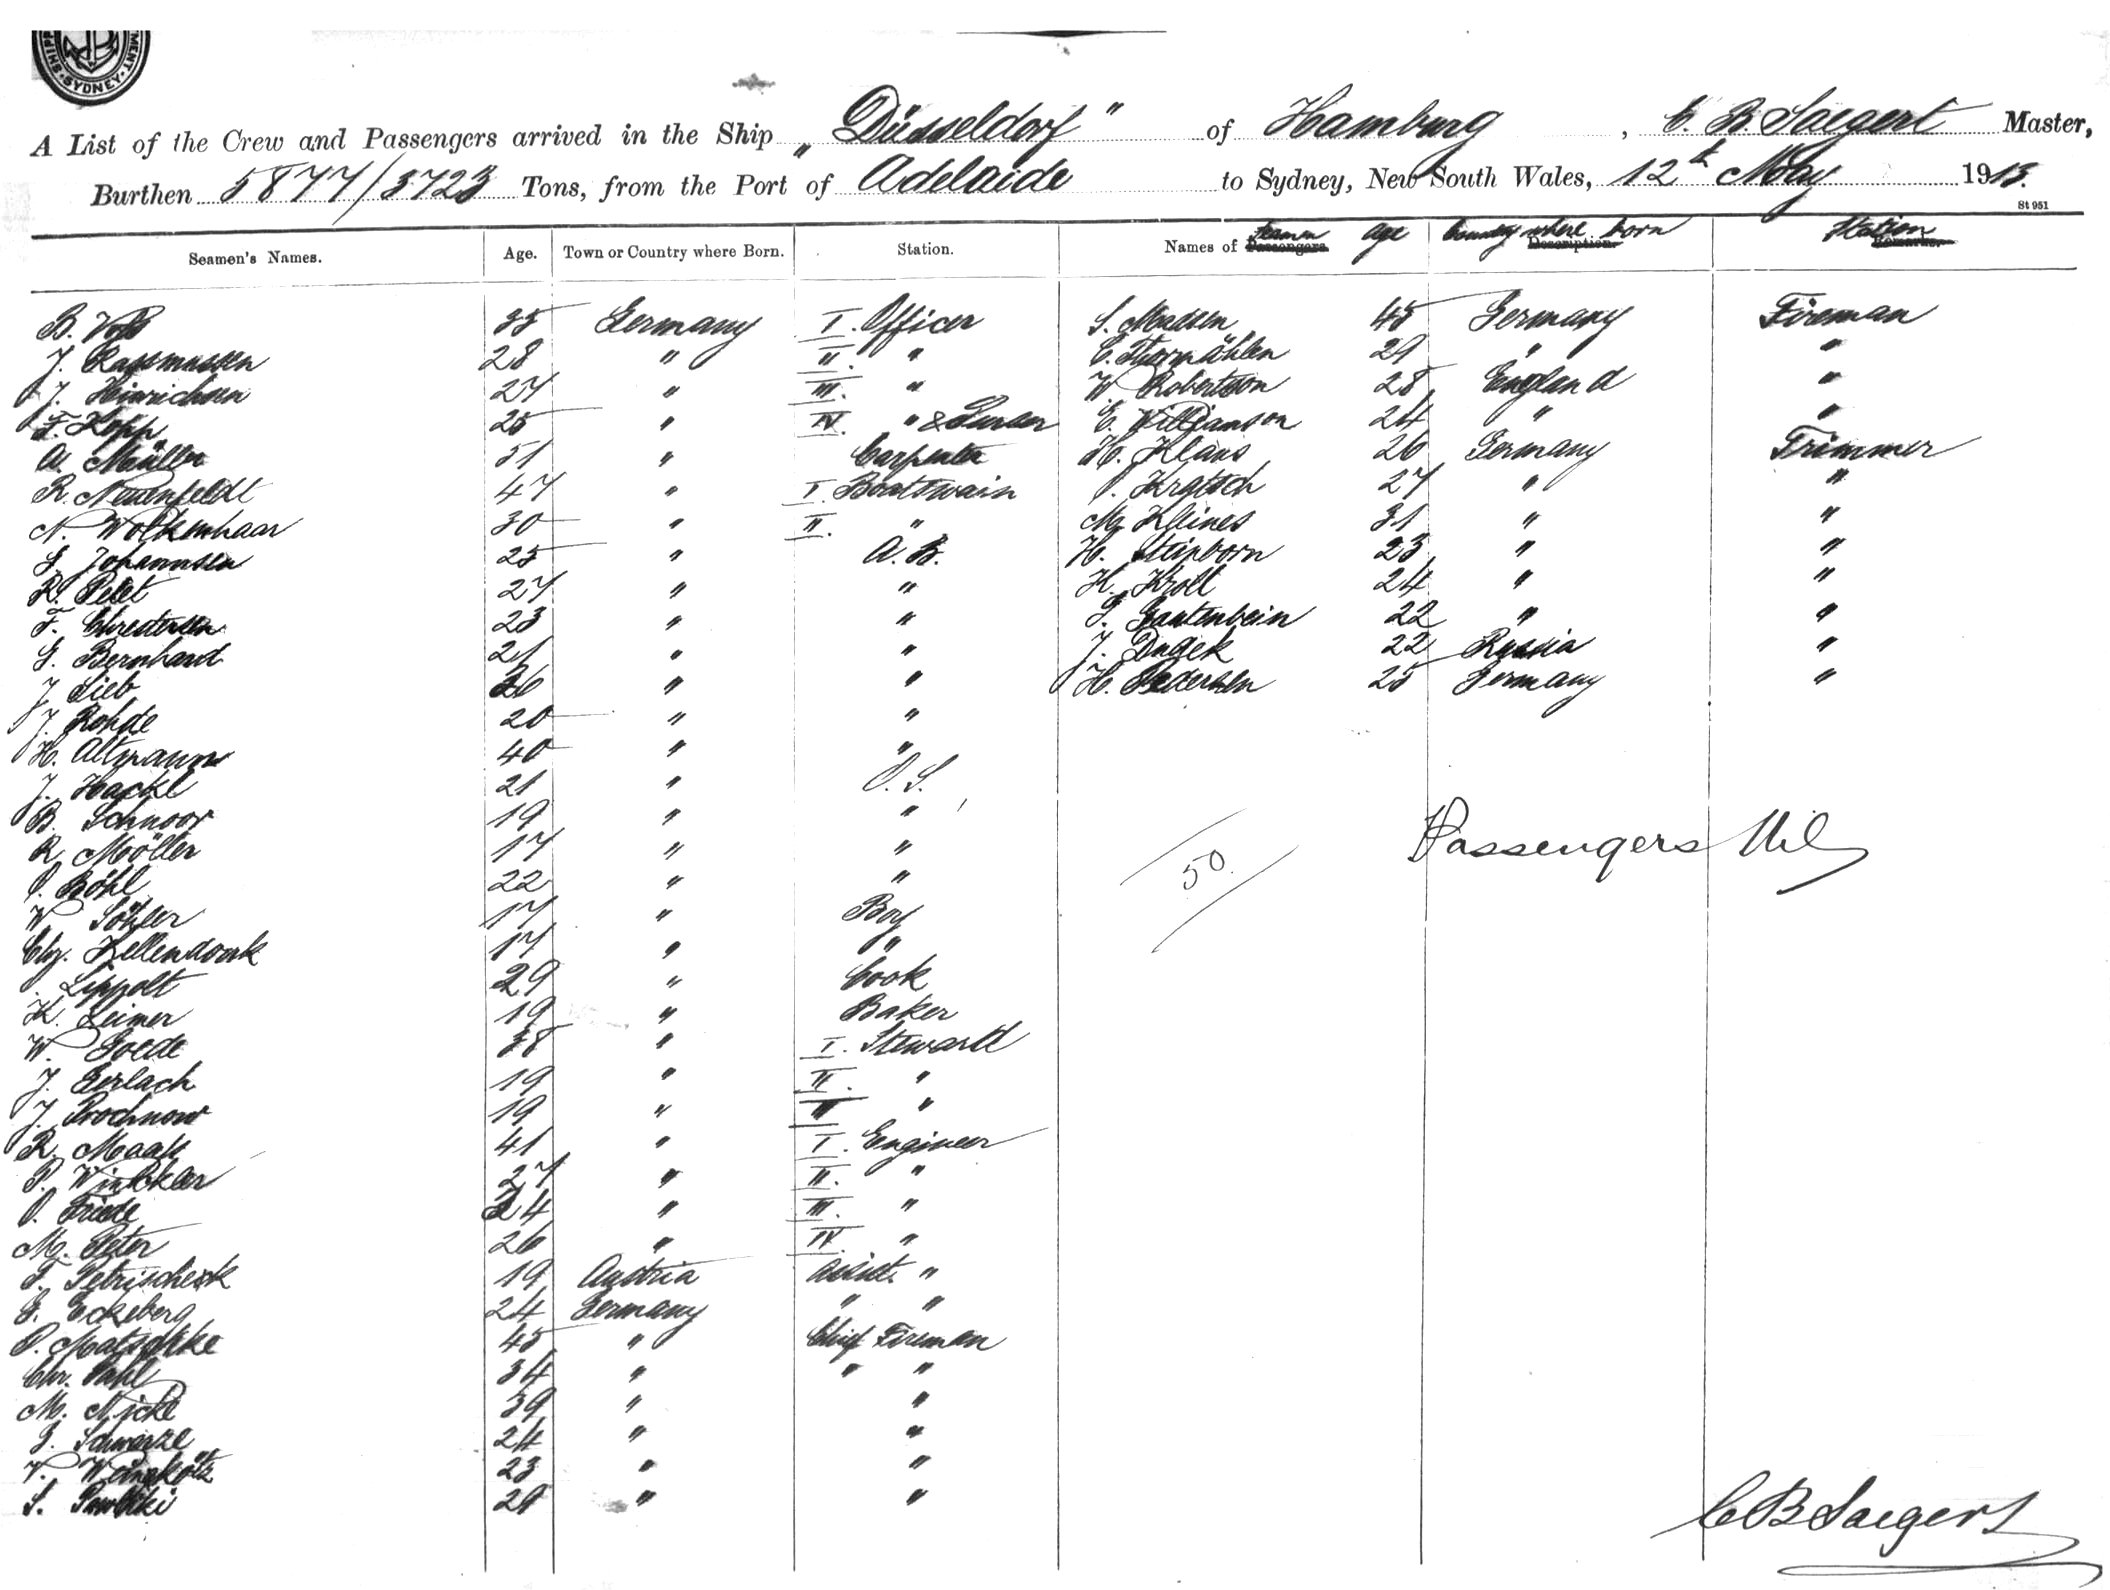 SHIPPING · SYDNEY · MENT
A List of the Crew and Passengers arrived in the Ship „Düsseldorf" of Hamburg, C. B. Saegert Master,
Burthen 5877/3723 Tons, from the Port of Adelaide to Sydney, New South Wales, 12th May 1913.
St 951
Seamen's Names. Age. Town or Country where Born. Station. Names of Passengers Seamen Age Description Country where born Remarks Station
B. Voß 35 Germany I. Officer S. Madsen 45 Germany Fireman
J. Rassmussen 28 " II. " C. Thormählen 29 " "
J. Hinrichsen 27 " III. " W. Robertson 28 England "
F. Kopp 25 " IV. " & Purser E. Williamson 24 " "
A. Müller 51 " Carpenter H. Klaus 26 Germany Trimmer
R. Neuenfeldt 47 " I. Boatswain Kratsch 27 " "
N. Wolkenhaar 30 " II. " M. Kleines 31 " "
Johannsen 25 " A.B. H. Stinborn 23 " "
R. 27 " " H. Kroll 24 " "
F. Chrestensen 23 " " Gautenbein 22 " "
G. Bernhard 21 " " J. Dudek 22 Russia "
J. Lieb 26 " " H. Pedersen 25 Germany "
J. Rohde 20 " "
H. Altmann 40 " "
J. Hackl 21 " O.S.
B. Schnoor 19 " "
R. Möller 17 " "
Böhl 22 " "
W. 17 " Boy
Chr. Kellendonk 17 " "
Lippolt 29 " Cook
K. Leimer 19 " Baker
W. Goede 38 " I. Steward
J. Gerlach 19 " II. "
J. Prochnow 19 " "
R. Maass 41 " I. Engineer
P. 27 " II. "
Friede 24 " III. "
M. Peter 26 " IV. "
F. Petrischek 19 Austria Assist. "
G. Eckeberg 24 Germany " "
P. Matschke 45 " Chief Fireman
Chr. Pahl 34 " " "
M. Nickl 39 " "
G. Schwarze 24 " "
23 " "
S. 29 " "
50.
Passengers Nil
C B Saegert